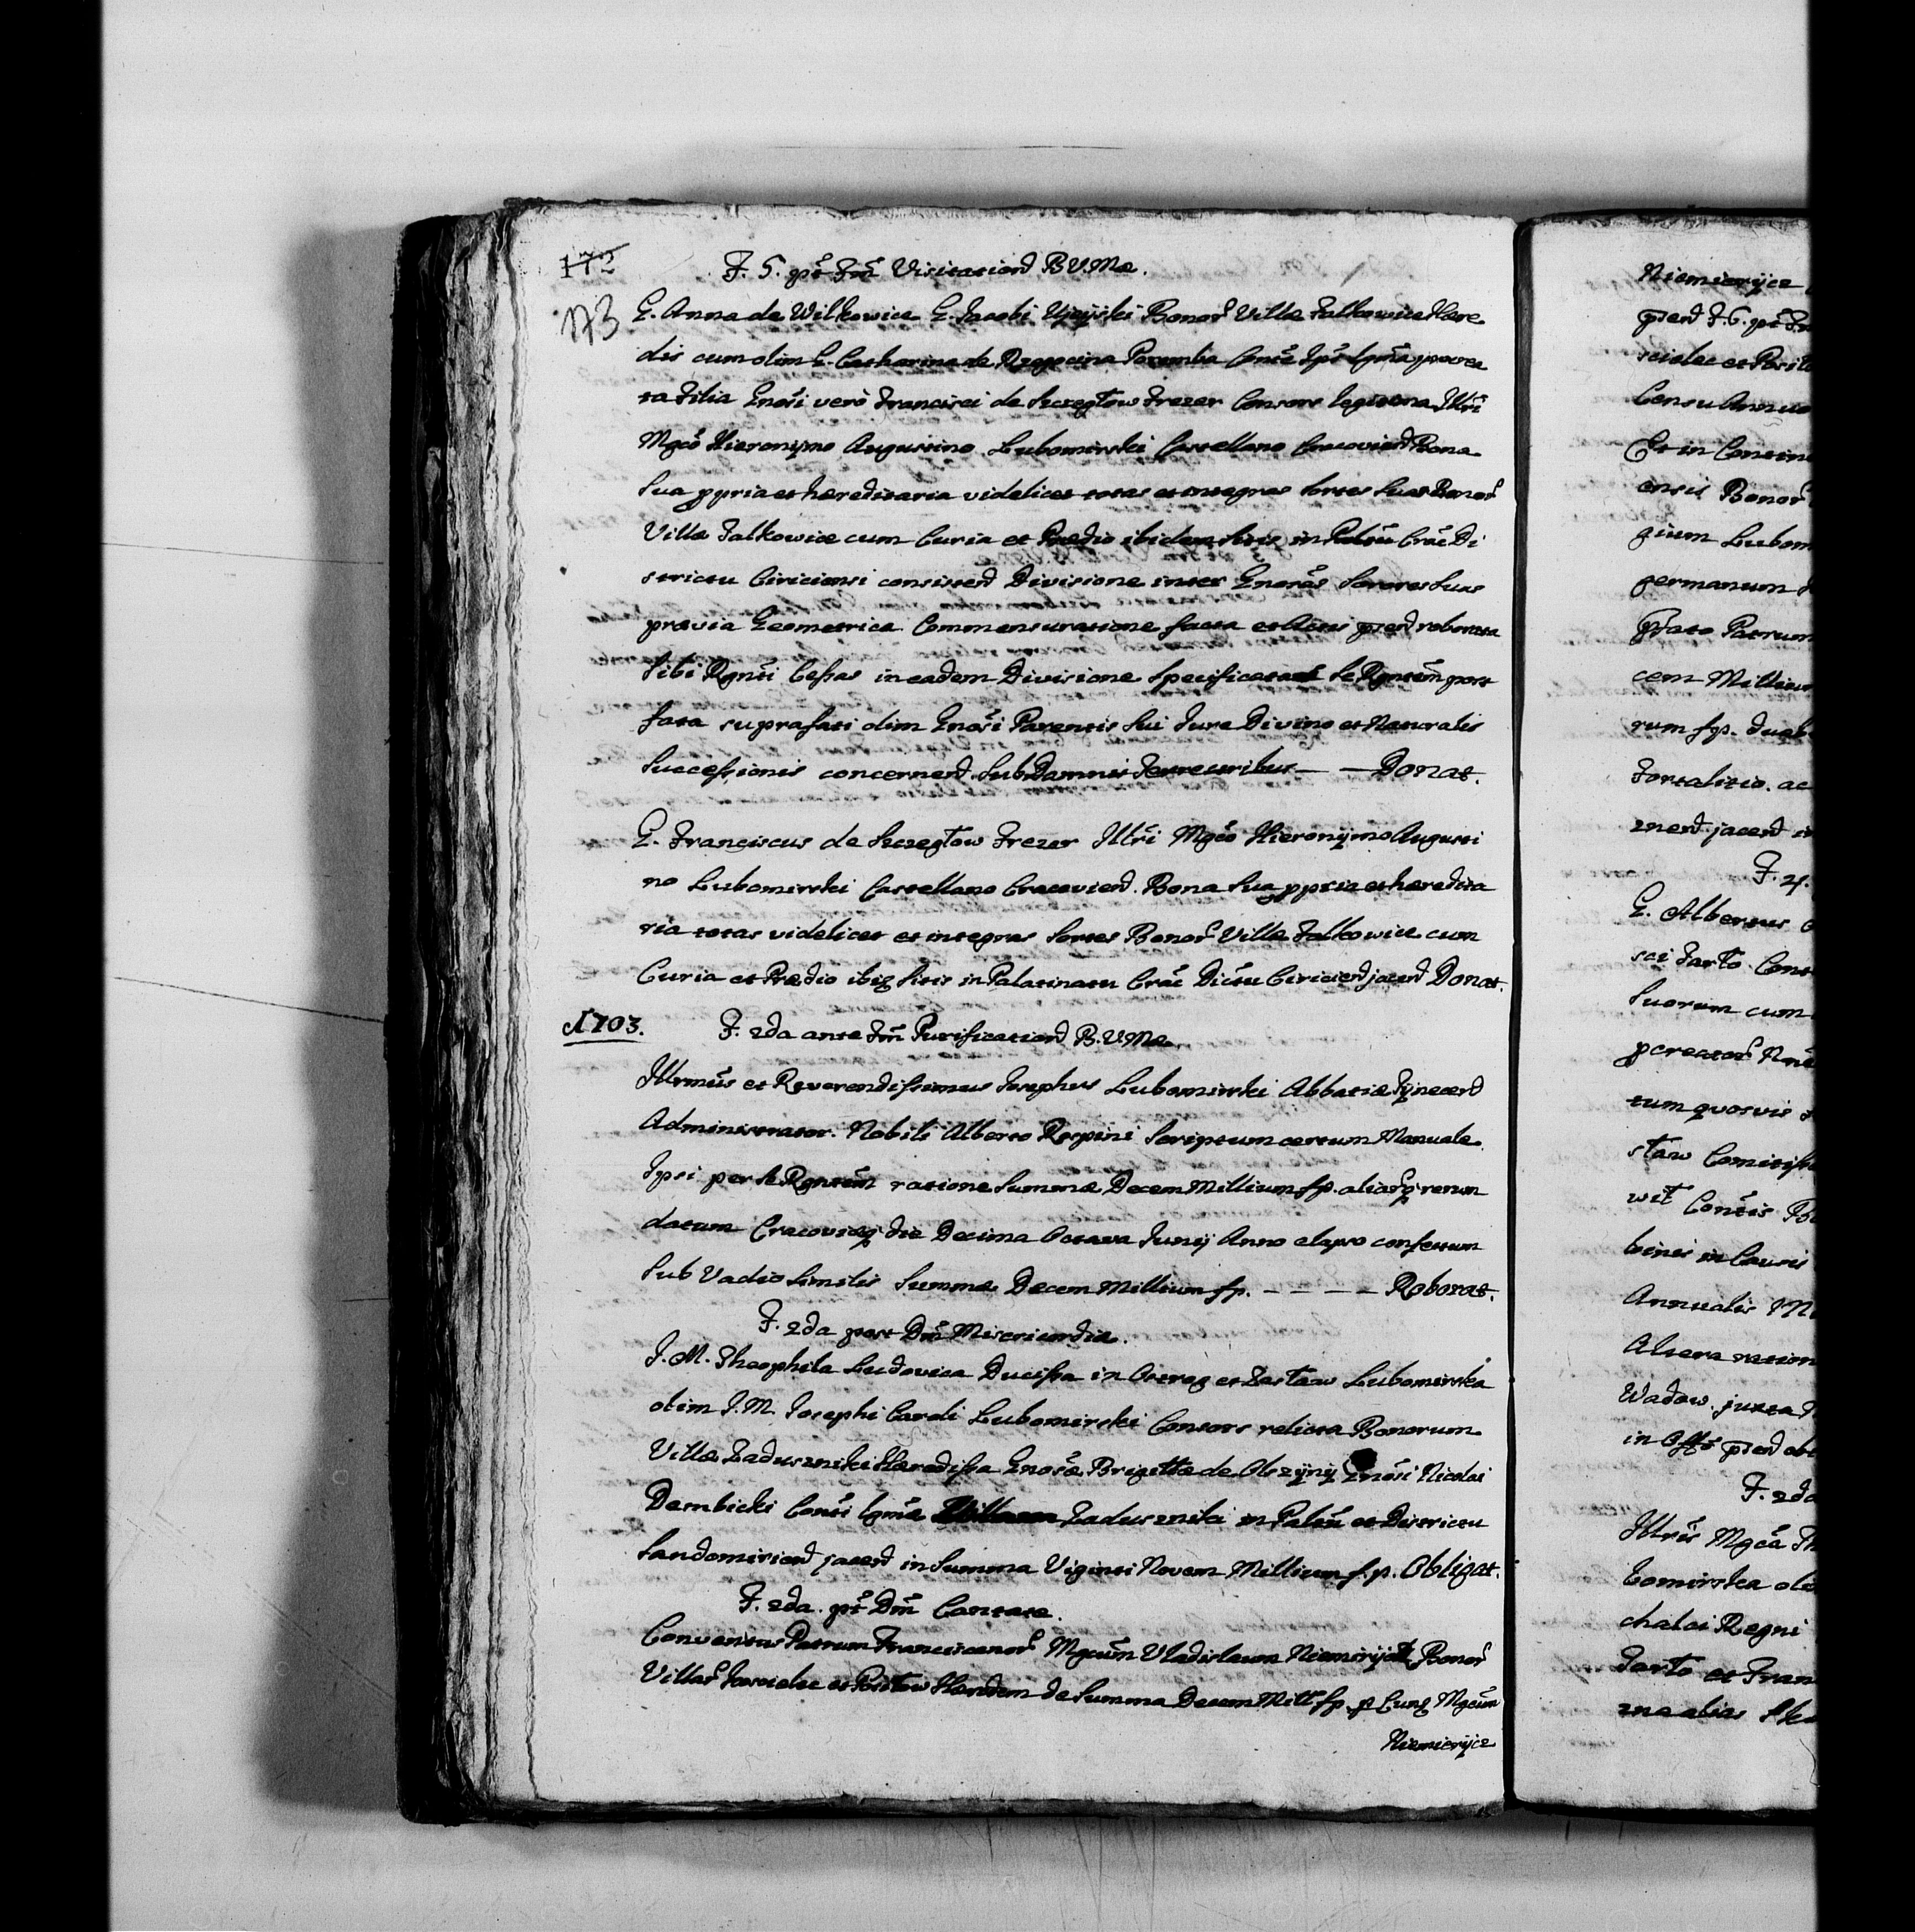 172
173
F. 5. pt Fm Visitationd B V. Mæ.
G. Anna de Wilkowice G. Jacobi Uyeyski Bonor Villæ Falkowice Hære
dis cum olim G. Catharina de Poremba Conte Ips Lgma procrea
ta Filia Gnosi verò Francisci de Szczegłow Frezer Consors legitima Illri
Mgco Hieronymo Augustino Lubomirski Castellano Cracoviend Bona
Sua ppria et hæreditaria videlicet totas et integras Sortes Suas Bonor
Villæ Falkowice cum Curia et Prædio ibidem Sitis in Palatu Crac Di
strictu Ciriciensi consistend Divisione inter Gnoras Sorores Suas
prævia Geometrica Commensuratione facta et Actis prend roborata
Sibi Rgnti Cessas in eadem Divisione Specificatas Se Rgntem post
fata suprafati olim Gnosi Parentis Sui Jure Divino et Naturalis
Successionis concernend. Sub Damnis Terrestribus — — Donat.
G. Franciscus de Szczegłow Frezer Illri Mgco Hieronymo Augusti
no Lubomirski Castellano Cracoviend. Bona Sua ppria et hæredita
ria totas videlicet et integras Sortes Bonor Villæ Falkowice cum
Curia et Prædio ibiq Sitis in Palatinatu Crac Dictu Ciriciend jacend Donat.
A 1703. F. 2da ante Fm Purificationd B. V. Mæ.
Illrmus et Reverendissimus Josephus Lubomirski Abbatiæ Tynecend
Administrator. Nobili Alberto Rospini Scriptum certum Manuale
Ipsi per Se Rgntem ratione Summæ Decem Millium fp. alias rerum
datum Cracoviæ die Decima Octava Junij Anno elapso confectum
Sub Vadio Similis Summæ Decem Millium fp. — — — — Roborat.
F. 2da post Dm Misericordiæ.
J. M. Theophila Ludovica Ducissa in Ostrog et Zasław Lubomirska
olim J. M. Josephi Caroli Lubomirski Consors relicta Bonorum
Villæ Zaduszniki Hæredissa Gnosæ Brigittæ de Olszyny Gnosi Nicolai
Dembicki Consti Lgmæ Zaduszniki in Palatu et Districtu
Sandomiriend jacend in Summa Viginti Novem Millium f. p. Obligat.
F. 2da. pt Dm Cantate.
Conventus Patrum Franciscanor Mgcum Vladislaum Niemirycz Bonor
Villar et Hærdem de Summa Decem Mill fp. p Eunq Mgcum
Niemierycz
Niemierycz
prend F. 6. pt
sciolec et
Censu Annuo
Et in Contine
ensis Bonor
gium Lubom
germanum
Patrum
cem Millium
rum fp. duab
Fortalitio. ac
znend. jacend in
F. 4.
G. Albertus
sci Tarło Cons
Suorum cum
pcreator
tum quosvis
sław Comitiss
wit Contis
binis in Cauris
Annualis
Altera ration
Wadow. juxta
in Offo prend
F. 2da
Illris Mgca Th
bomirska oli
chalci Regni
Tarło et Fran
zna alias